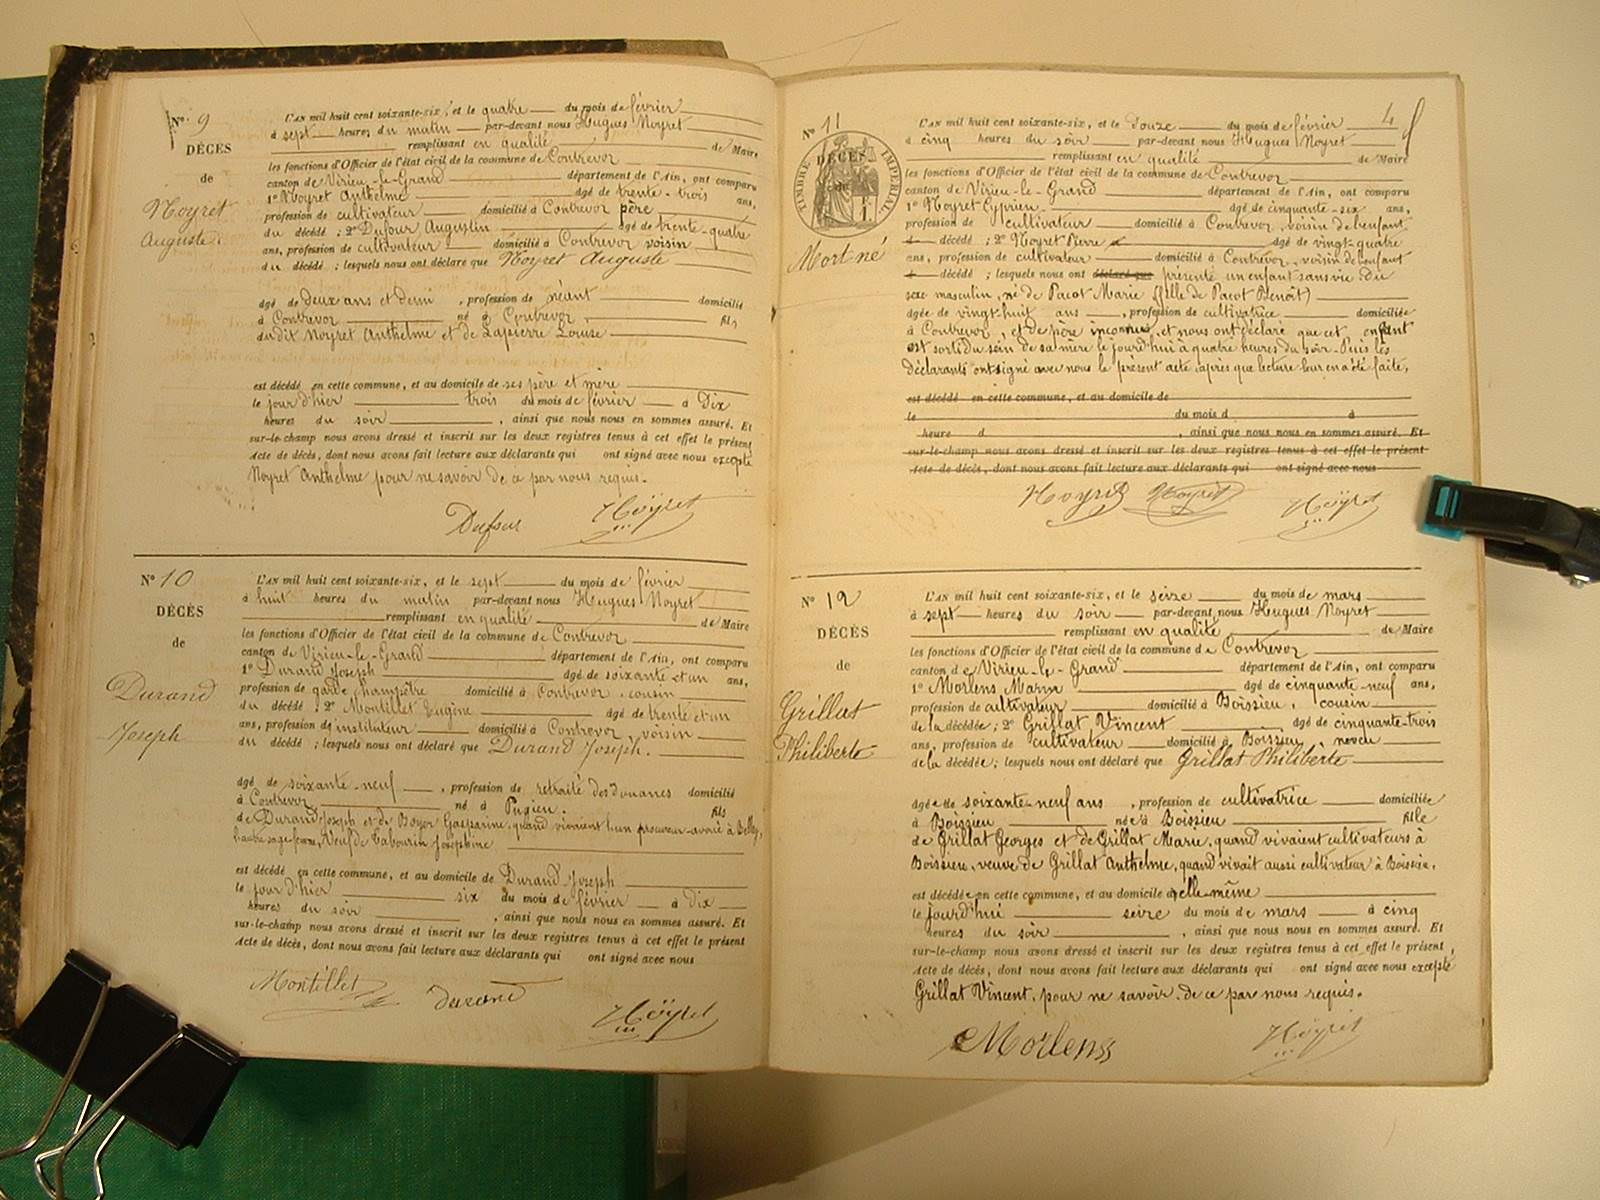 N° 9
DÉCÈS
de
Noyret
Auguste.
L'AN mil huit cent soixante-six, et le quatre du mois de février
à sept heures du matin par-devant nous Hugues Noyret
remplissant en qualité de Maire
les fonctions d'Officier de l'état civil de la commune de Contrevoz
canton de Virieu-le-Grand département de l'Ain, ont comparu
1° Noyret Anthelme âgé de trente-trois ans,
profession de cultivateur domicilié à Contrevoz père
du décédé ; 2° Dufour Augustin âgé de trente-quatre
ans, profession de cultivateur domicilié à Contrevoz voisin
du décédé ; lesquels nous ont déclaré que Noyret Auguste
âgé de deux ans et demi, profession de néant domicilié
à Contrevoz né à Contrevoz, fils
du dit Noyret Anthelme et de Lapierre Louise
est décédé en cette commune, et au domicile de ses père et mère
le jour d'hier trois du mois de février à Dix
heures du soir, ainsi que nous nous en sommes assuré. Et
sur-le-champ nous avons dressé et inscrit sur les deux registres tenus à cet effet le présent
Acte de décès, dont nous avons fait lecture aux déclarants qui ont signé avec nous excepté
Noyret Anthelme pour ne savoir de ce par nous requis.
Dufour Noÿret
N° 10
DÉCÈS
de
Durand
Joseph
L'AN mil huit cent soixante-six, et le sept du mois de février
à huit heures du matin par-devant nous Hugues Noyret
remplissant en qualité de Maire
les fonctions d'Officier de l'état civil de la commune de Contrevoz
canton de Virieu-le-Grand département de l'Ain, ont comparu
1° Durand Joseph âgé de soixante et un ans,
profession de garde champêtre domicilié à Contrevoz, cousin
du décédé ; 2° Montillet Eugène âgé de trente et un
ans, profession de instituteur domicilié à Contrevoz, voisin
du décédé ; lesquels nous ont déclaré que Durand Joseph.
âgé de soixante-neuf, profession de retraité des douanes domicilié
à Contrevoz né à Pugieu. fils
de Durand Joseph et de Boyer Gasparine, quand vivaient l'un procureur-avoué à Belley,
l'autre sage-femme, Veuf de Tabourin Joséphine
est décédé en cette commune, et au domicile de Durand Joseph
le jour d'hier six du mois de février à dix
heures du soir, ainsi que nous nous en sommes assuré. Et
sur-le-champ nous avons dressé et inscrit sur les deux registres tenus à cet effet le présent
Acte de décès, dont nous avons fait lecture aux déclarants qui ont signé avec nous
Montillet Durand Noÿret
4
N° 11
TIMBRE IMPERIAL
DÉCÈS
de
Mort-né
L'AN mil huit cent soixante-six, et le douze du mois de février
à cinq heures du soir par-devant nous Hugues Noyret
remplissant en qualité de Maire
les fonctions d'Officier de l'état civil de la commune de Contrevoz
canton de Virieu-le-Grand département de l'Ain, ont comparu
1° Noyret Cyprien âgé de cinquante-six ans,
profession de cultivateur domicilié à Contrevoz, voisin de l'enfant
d décédé ; 2° Noyret Pierre âgé de vingt-quatre
ans, profession de cultivateur domicilié à Contrevoz, voisin de l'enfant
d décédé ; lesquels nous ont déclaré que présenté un enfant sans vie du
sexe masculin, né de Pacot Marie (fille de Pacot Benoît)
âgée de vingt-huit ans, profession de cultivatrice domiciliée
à Contrevoz, et de père inconnu, et nous ont déclaré que cet enfant
est sorti du sein de sa mère le jourd'hui à quatre heures du soir. Puis les
déclarants ont signé avec nous le présent acte, après que lecture leur en a été faite,
est décédé en cette commune, et au domicile de
le du mois d à
heure d, ainsi que nous nous en sommes assuré. Et
sur-le-champ nous avons dressé et inscrit sur les deux registres tenus à cet effet le présent
Acte de décès, dont nous avons fait lecture aux déclarants qui ont signé avec nous
Noyret Noyret Noÿret
N° 12
DÉCÈS
de
Grillat
Philiberte
L'AN mil huit cent soixante-six, et le seize du mois de mars
à sept heures du soir par-devant nous Hugues Noyret
remplissant en qualité de Maire
les fonctions d'Officier de l'état civil de la commune de Contrevoz
canton de Virieu-le-Grand département de l'Ain, ont comparu
1° Morlens Marin âgé de cinquante-neuf ans,
profession de cultivateur domicilié à Boissieu, cousin
de la décédée ; 2° Grillat Vincent âgé de cinquante-trois
ans, profession de cultivateur domicilié à Boissieu, neveu
de la décédée ; lesquels nous ont déclaré que Grillat Philiberte
âgée de soixante-neuf ans, profession de cultivatrice domiciliée
à Boissieu née à Boissieu fille
de Grillat Georges et de Grillat Marie, quand vivaient cultivateurs à
Boissieu, veuve de Grillat Anthelme, quand vivait aussi cultivateur à Boissieu.
est décédée en cette commune, et au domicile d'elle-même
le jourd'hui seize du mois de mars à cinq
heures du soir, ainsi que nous nous en sommes assuré. Et
sur-le-champ nous avons dressé et inscrit sur les deux registres tenus à cet effet le présent
Acte de décès, dont nous avons fait lecture aux déclarants qui ont signé avec nous excepté
Grillat Vincent, pour ne savoir de ce par nous requis.
Morlens Noÿret